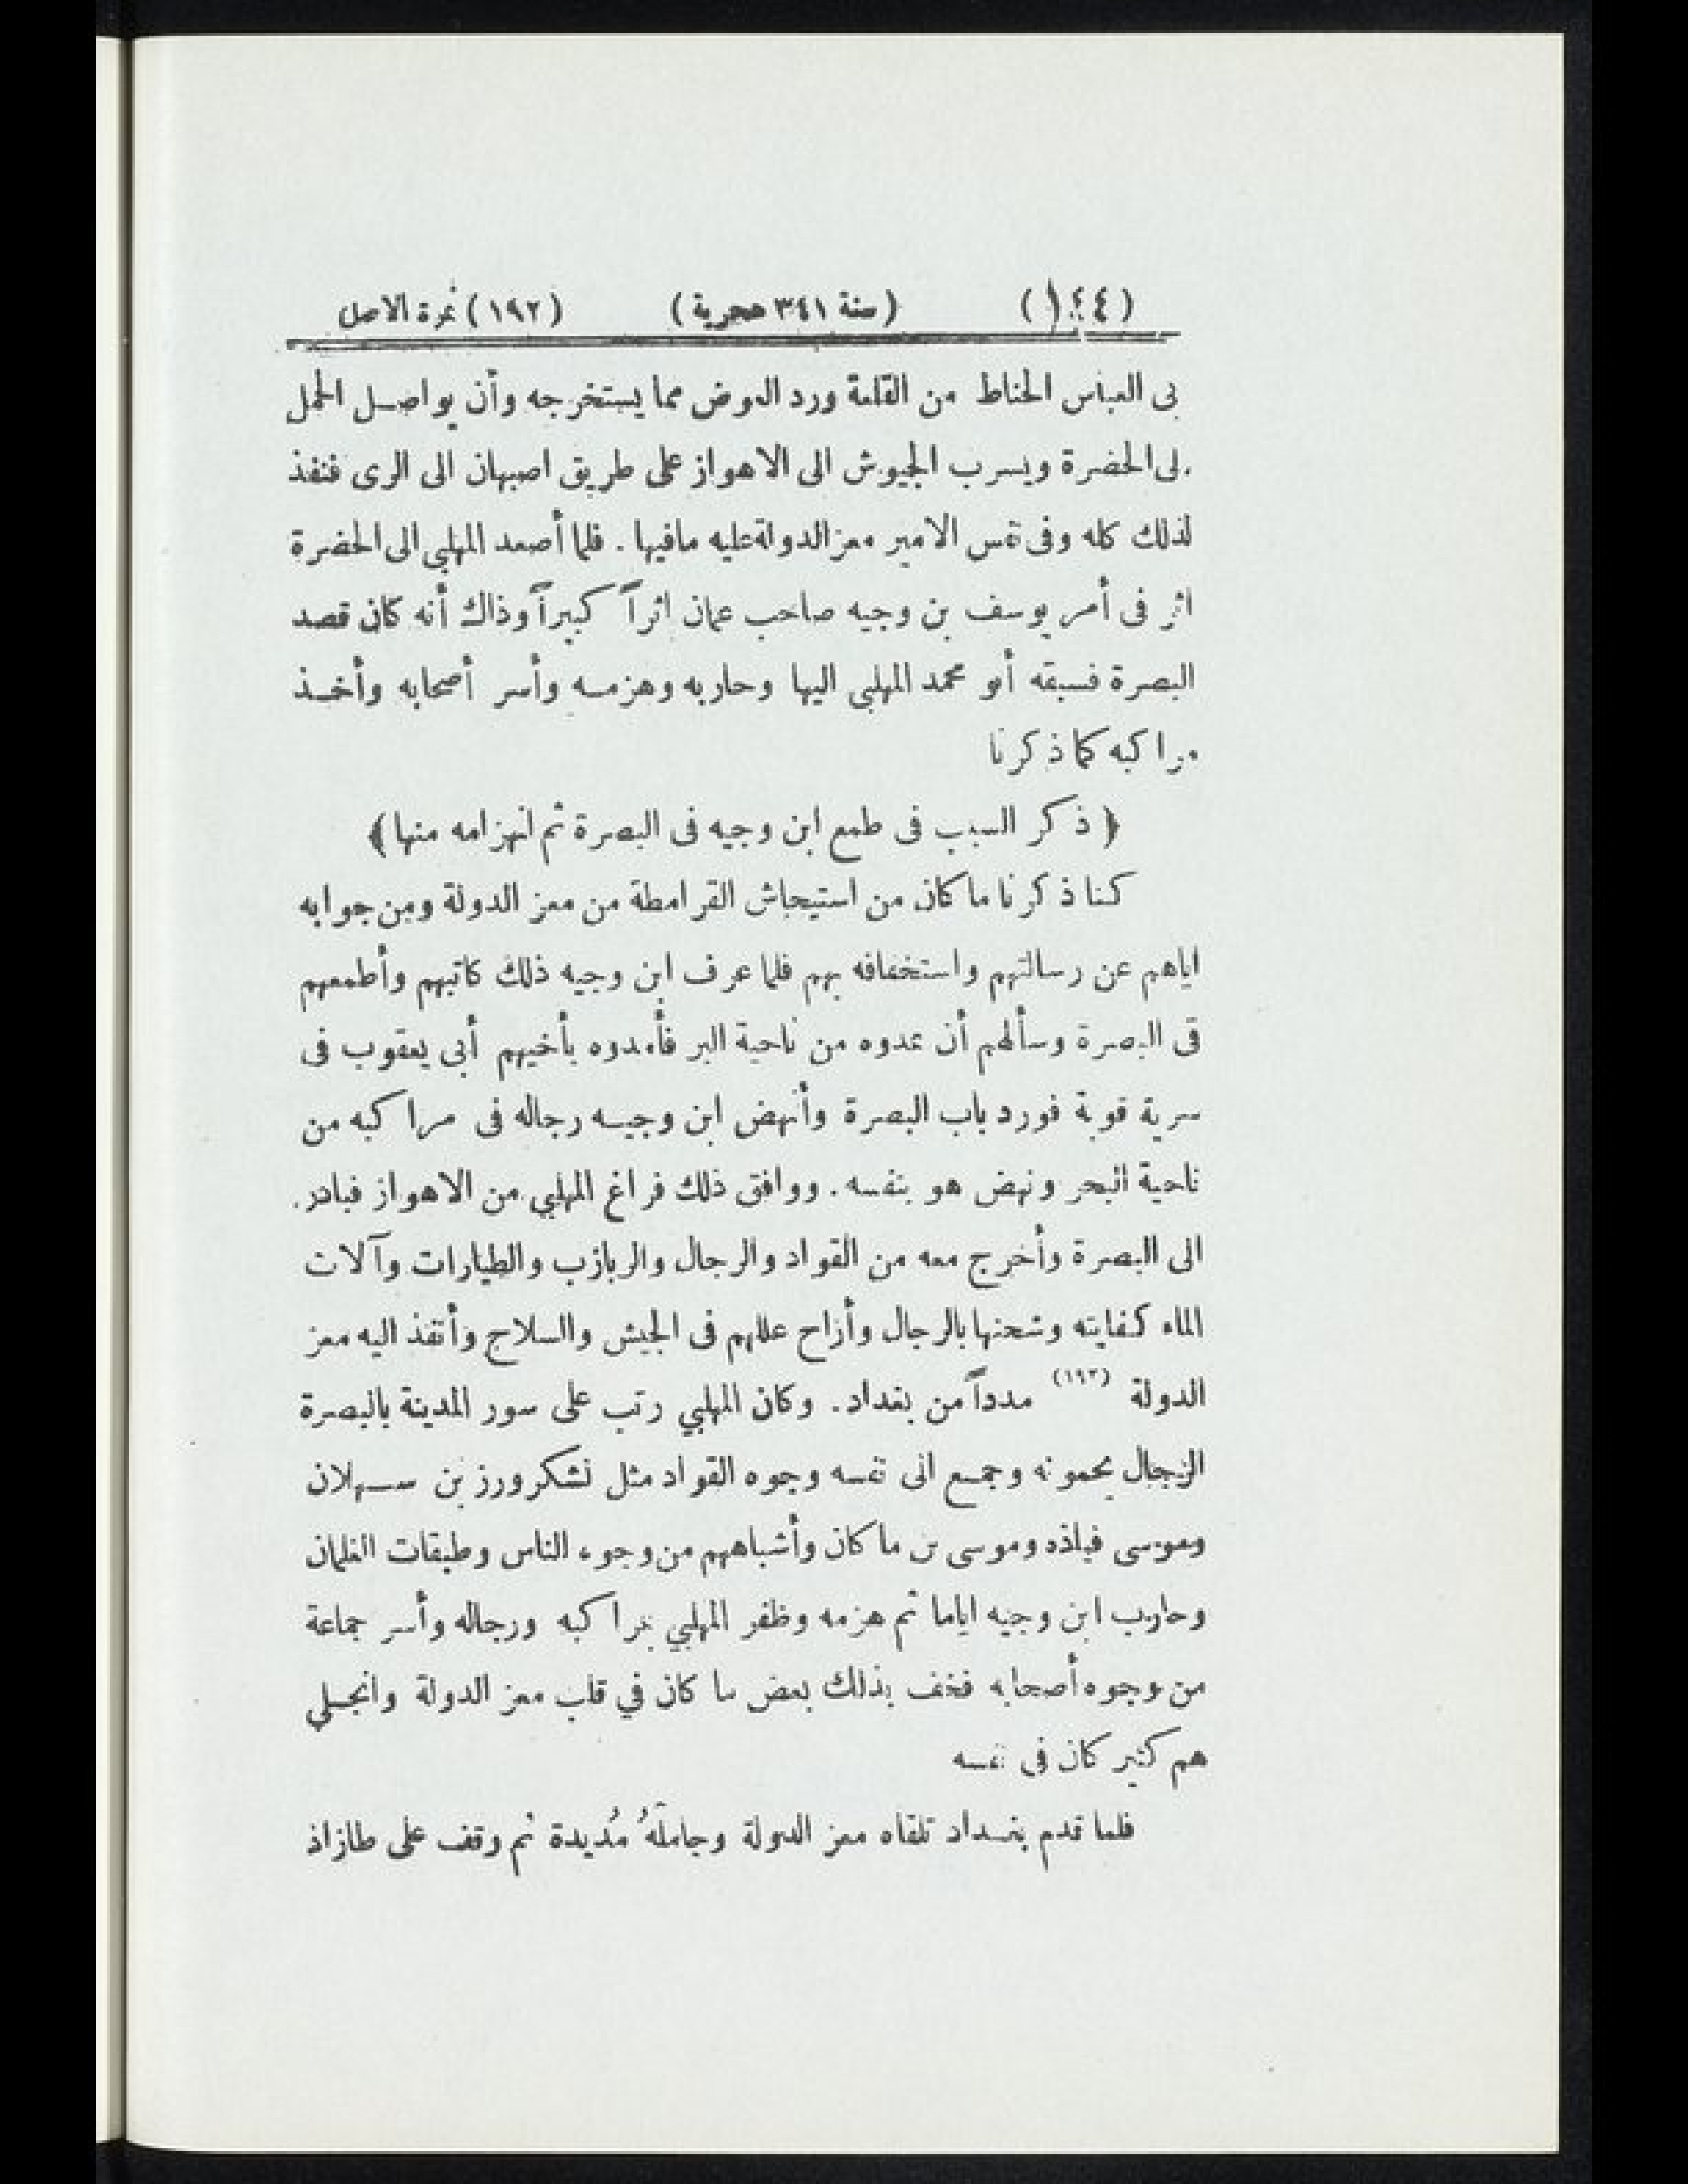 (١٤٤) (سنة ٣٤١ هجرية) (١٩٢) نمرة الاصل
بى العباس الحناط من القلعة ورد العوض مما يستخرجه وأن يواصل الحمل
لى الحضرة ويسرب الجيوش الى الاهواز على طريق اصبهان الى الرى فنفذ
لذلك كله وفى نفس الامير معز الدولة عليه مافيها . فلما أصعد المهلبى الى الحضرة
اثر فى أمر يوسف بن وجيه صاحب عمان اثراً كبيراً وذاك أنه كان قصد
البصرة فسبقه أبو محمد المهلبى اليها وحاربه وهزمه وأسر أصحابه وأخذ
مراكبه كما ذكرنا
﴿ ذكر السبب فى طمع ابن وجيه فى البصرة ثم انهزامه منها ﴾
كنا ذكرنا ما كان من استيحاش القرامطة من معز الدولة ومن جوابه
اياهم عن رسالتهم واستخفافه بهم فلما عرف ابن وجيه ذلك كاتبهم وأطمعهم
فى البصرة وسألهم أن يمدوه من ناحية البر فأمدوه بأخيهم أبى يعقوب فى
سرية قوية فورد باب البصرة وأنهض ابن وجيه رجاله فى مراكبه من
ناحية البحر ونهض هو بنفسه . ووافق ذلك فراغ المهلبي من الاهواز فبادر
الى البصرة وأخرج معه من القواد والرجال والزبازب والطيارات وآلات
الماء كفايته وشحنها بالرجال وأزاح عللهم فى الجيش والسلاح وأنفذ اليه معز
الدولة (١٩٣) مدداً من بغداد . وكان المهلبي رتب على سور المدينة بالبصرة
الرجال يحمونه وجمع الى نفسه وجوه القواد مثل لشكرورز بن سهلان
وموسى فياذه وموسى بن ما كان وأشباههم من وجوه الناس وطبقات الغلمان
وحارب ابن وجيه اياما ثم هزمه وظفر المهلبي بمراكبه ورجاله وأسر جماعة
من وجوه أصحابه فخف بذلك بعض ما كان في قلب معز الدولة وانجلي
هم كثير كان فى نفسه
فلما قدم بغداد تلقاه معز الدولة وجامله مُديدة ثم وقف على طازاذ